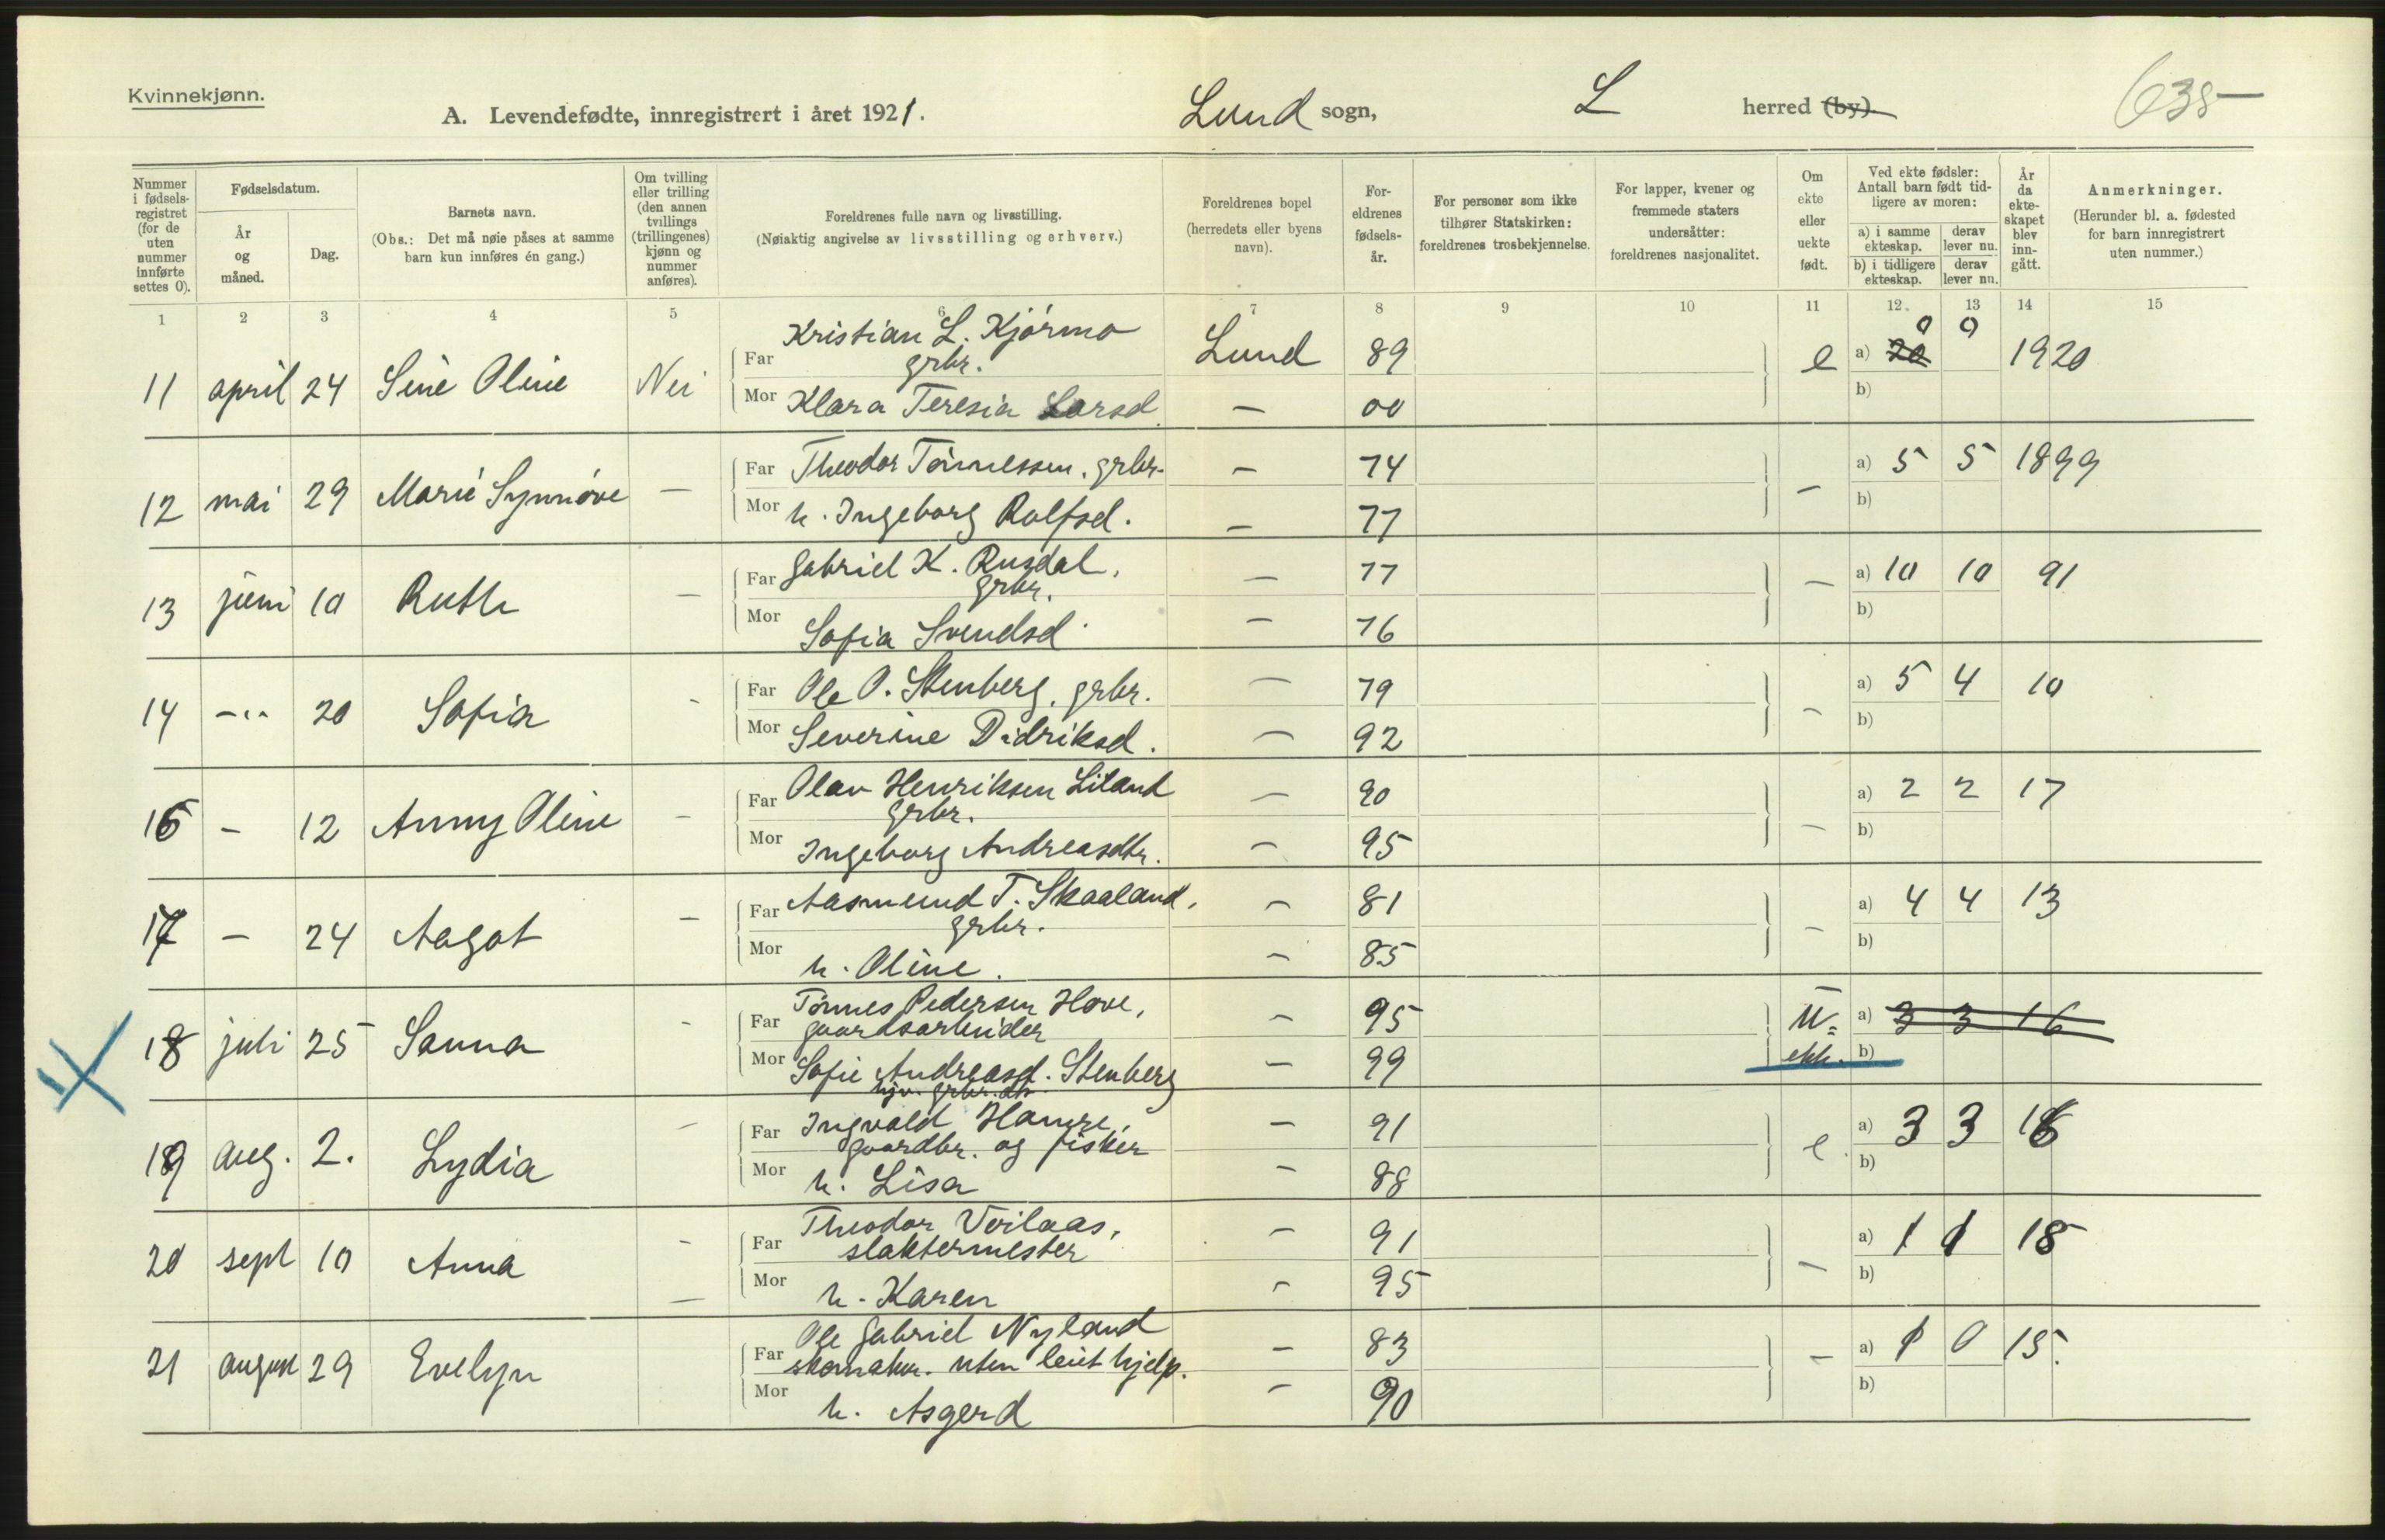 Kvinnekjønn.
A. Levendefødte, innregistrert i året 1921.
Lund sogn,
L herred (by).
635
Nummer i fødsels-registret (for de uten nummer innførte settes 0).
Fødselsdatum.
År og måned.
Dag.
Barnets navn.
(Obs.: Det må nøie påses at samme barn kun innføres én gang.)
Om tvilling eller trilling (den annen tvillings (trillingenes) kjønn og nummer anføres).
Foreldrenes fulle navn og livsstilling.
(Nøiaktig angivelse av livsstilling og erhverv.)
Foreldrenes bopel (herredets eller byens navn).
For-eldrenes fødsels-år.
For personer som ikke tilhører Statskirken: foreldrenes trosbekjennelse.
For lapper, kvener og fremmede staters undersåtter: foreldrenes nasjonalitet.
Om ekte eller uekte født.
Ved ekte fødsler: Antall barn født tid-ligere av moren:
a) i samme ekteskap.
derav lever nu.
b) i tidligere ekteskap.
derav lever nu.
År da ekte-skapet blev inn-gått.
Anmerkninger.
(Herunder bl. a. fødested for barn innregistrert uten nummer.)
1 2 3 4 5 6 7 8 9 10 11 12. 13 14 15
11 april 24 Sine Oline Nei
Far Kristian L. Kjørmo grbr. Lund 89 e a) 20 0 0 1920
Mor Klara Teresia Larsd. — 00 b)
12 mai 29 Marie Synnøve —
Far Theodor Tønnessen. grbr. — 74 — a) 5 5 1899
Mor h. Ingeborg Rolfsd. — 77 b)
13 juni 10 Ruth —
Far Gabriel K. Rusdal, grbr. — 77 — a) 10 10 91
Mor Sofia Svendsd. — 76 b)
14 -"- 20 Sofia -
Far Ole O. Stenberg, grbr. — 79 — a) 5 4 10
Mor Severine Didriksd. — 92 b)
16 — 12 Anny Oline —
Far Olav Henriksen Liland grbr. — 90 — a) 2 2 17
Mor Ingeborg Andreasdtr. — 95 b)
17 — 24 Aagot —
Far Aasmund T. Skaaland, grbr. — 81 — a) 4 4 13
Mor h. Oline. — 85 b)
18 juli 25 Sanna -
Far Tønnes Pedersen Hove, gaardsarbeider — 95 U= a) 3 3 16
Mor Sofie Andreasd. Stenberg — 99 ekt. b)
19 aug. 2. Lydia —
Far Ingvald Hamre, gaardbr. og fisker — 91 e. a) 3 3 16
Mor h. Lisa — 88 b)
20 sept 10 Anna -
Far Theodor Veilaas, slaktermester — 91 — a) 1 1 18
Mor h. Karen — 95 b)
21 august 29 Evelyn —
Far Ole Gabriel Nyland skomaker. uten leiet hjelp. — 83 — a) 1 0 15.
Mor h. Asgerd — 90 b)